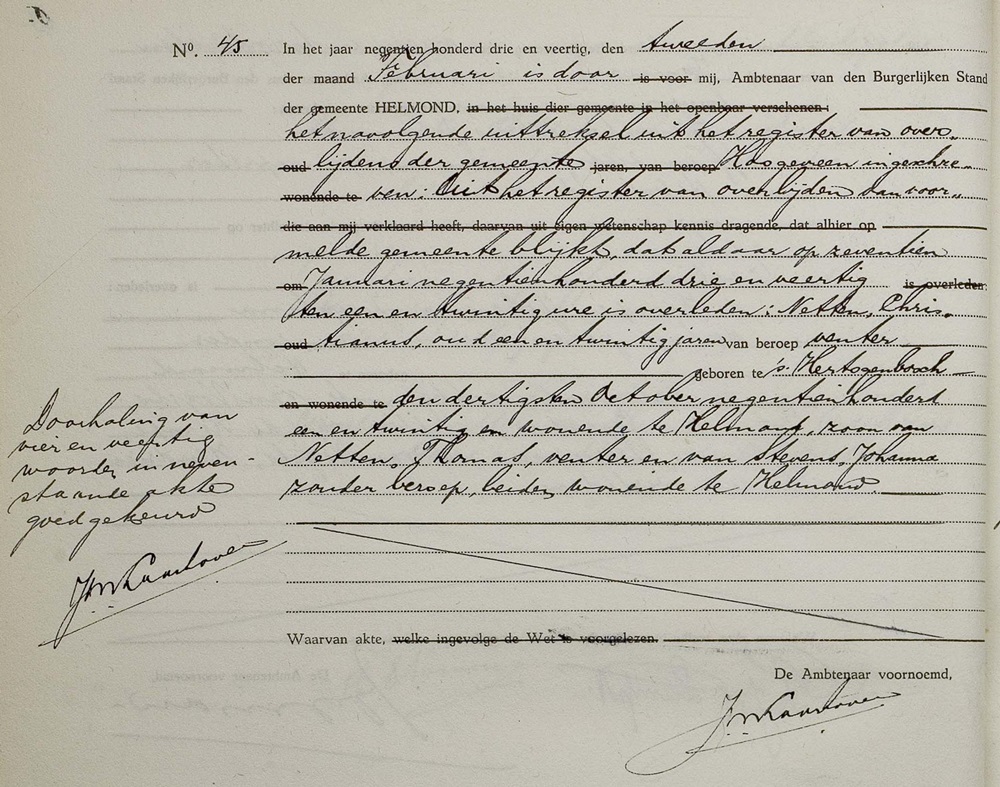 Nº. 45 In het jaar negentien honderd drie en veertig, den tweeden
der maand Februari is door is voor mij, Ambtenaar van den Burgerlijken Stand
der gemeente HELMOND, in het huis dier gemeente in het openbaar verschenen:
het navolgende uittreksel uit het register van over-
oud lijden der gemeente jaren, van beroep Hoogeveen ingeschre-
wonende te ven: Uit het register van overlijden van voor-
die aan mij verklaard heeft, daarvan uit eigen wetenschap kennis dragende, dat alhier op
melde gemeente blijkt, dat aldaar op zeventien
om Januari negentienhonderd drie en veertig is overleden
ten een en twintig ure is overleden: Netten, Chris-
oud tianus, oud een en twintig jaren van beroep venter
geboren te 's Hertogenbosch
en wonende te den dertigsten October negentienhonderd
een en twintig en wonende te Helmond, zoon van
Netten, Thomas, venter en van Stevens, Johanna
zonder beroep, beiden wonende te Helmond.
Doorhaling van
vier en veertig
woorden in neven-
staande akte
goedgekeurd
Waarvan akte, welke ingevolge de Wet is voorgelezen.
De Ambtenaar voornoemd,